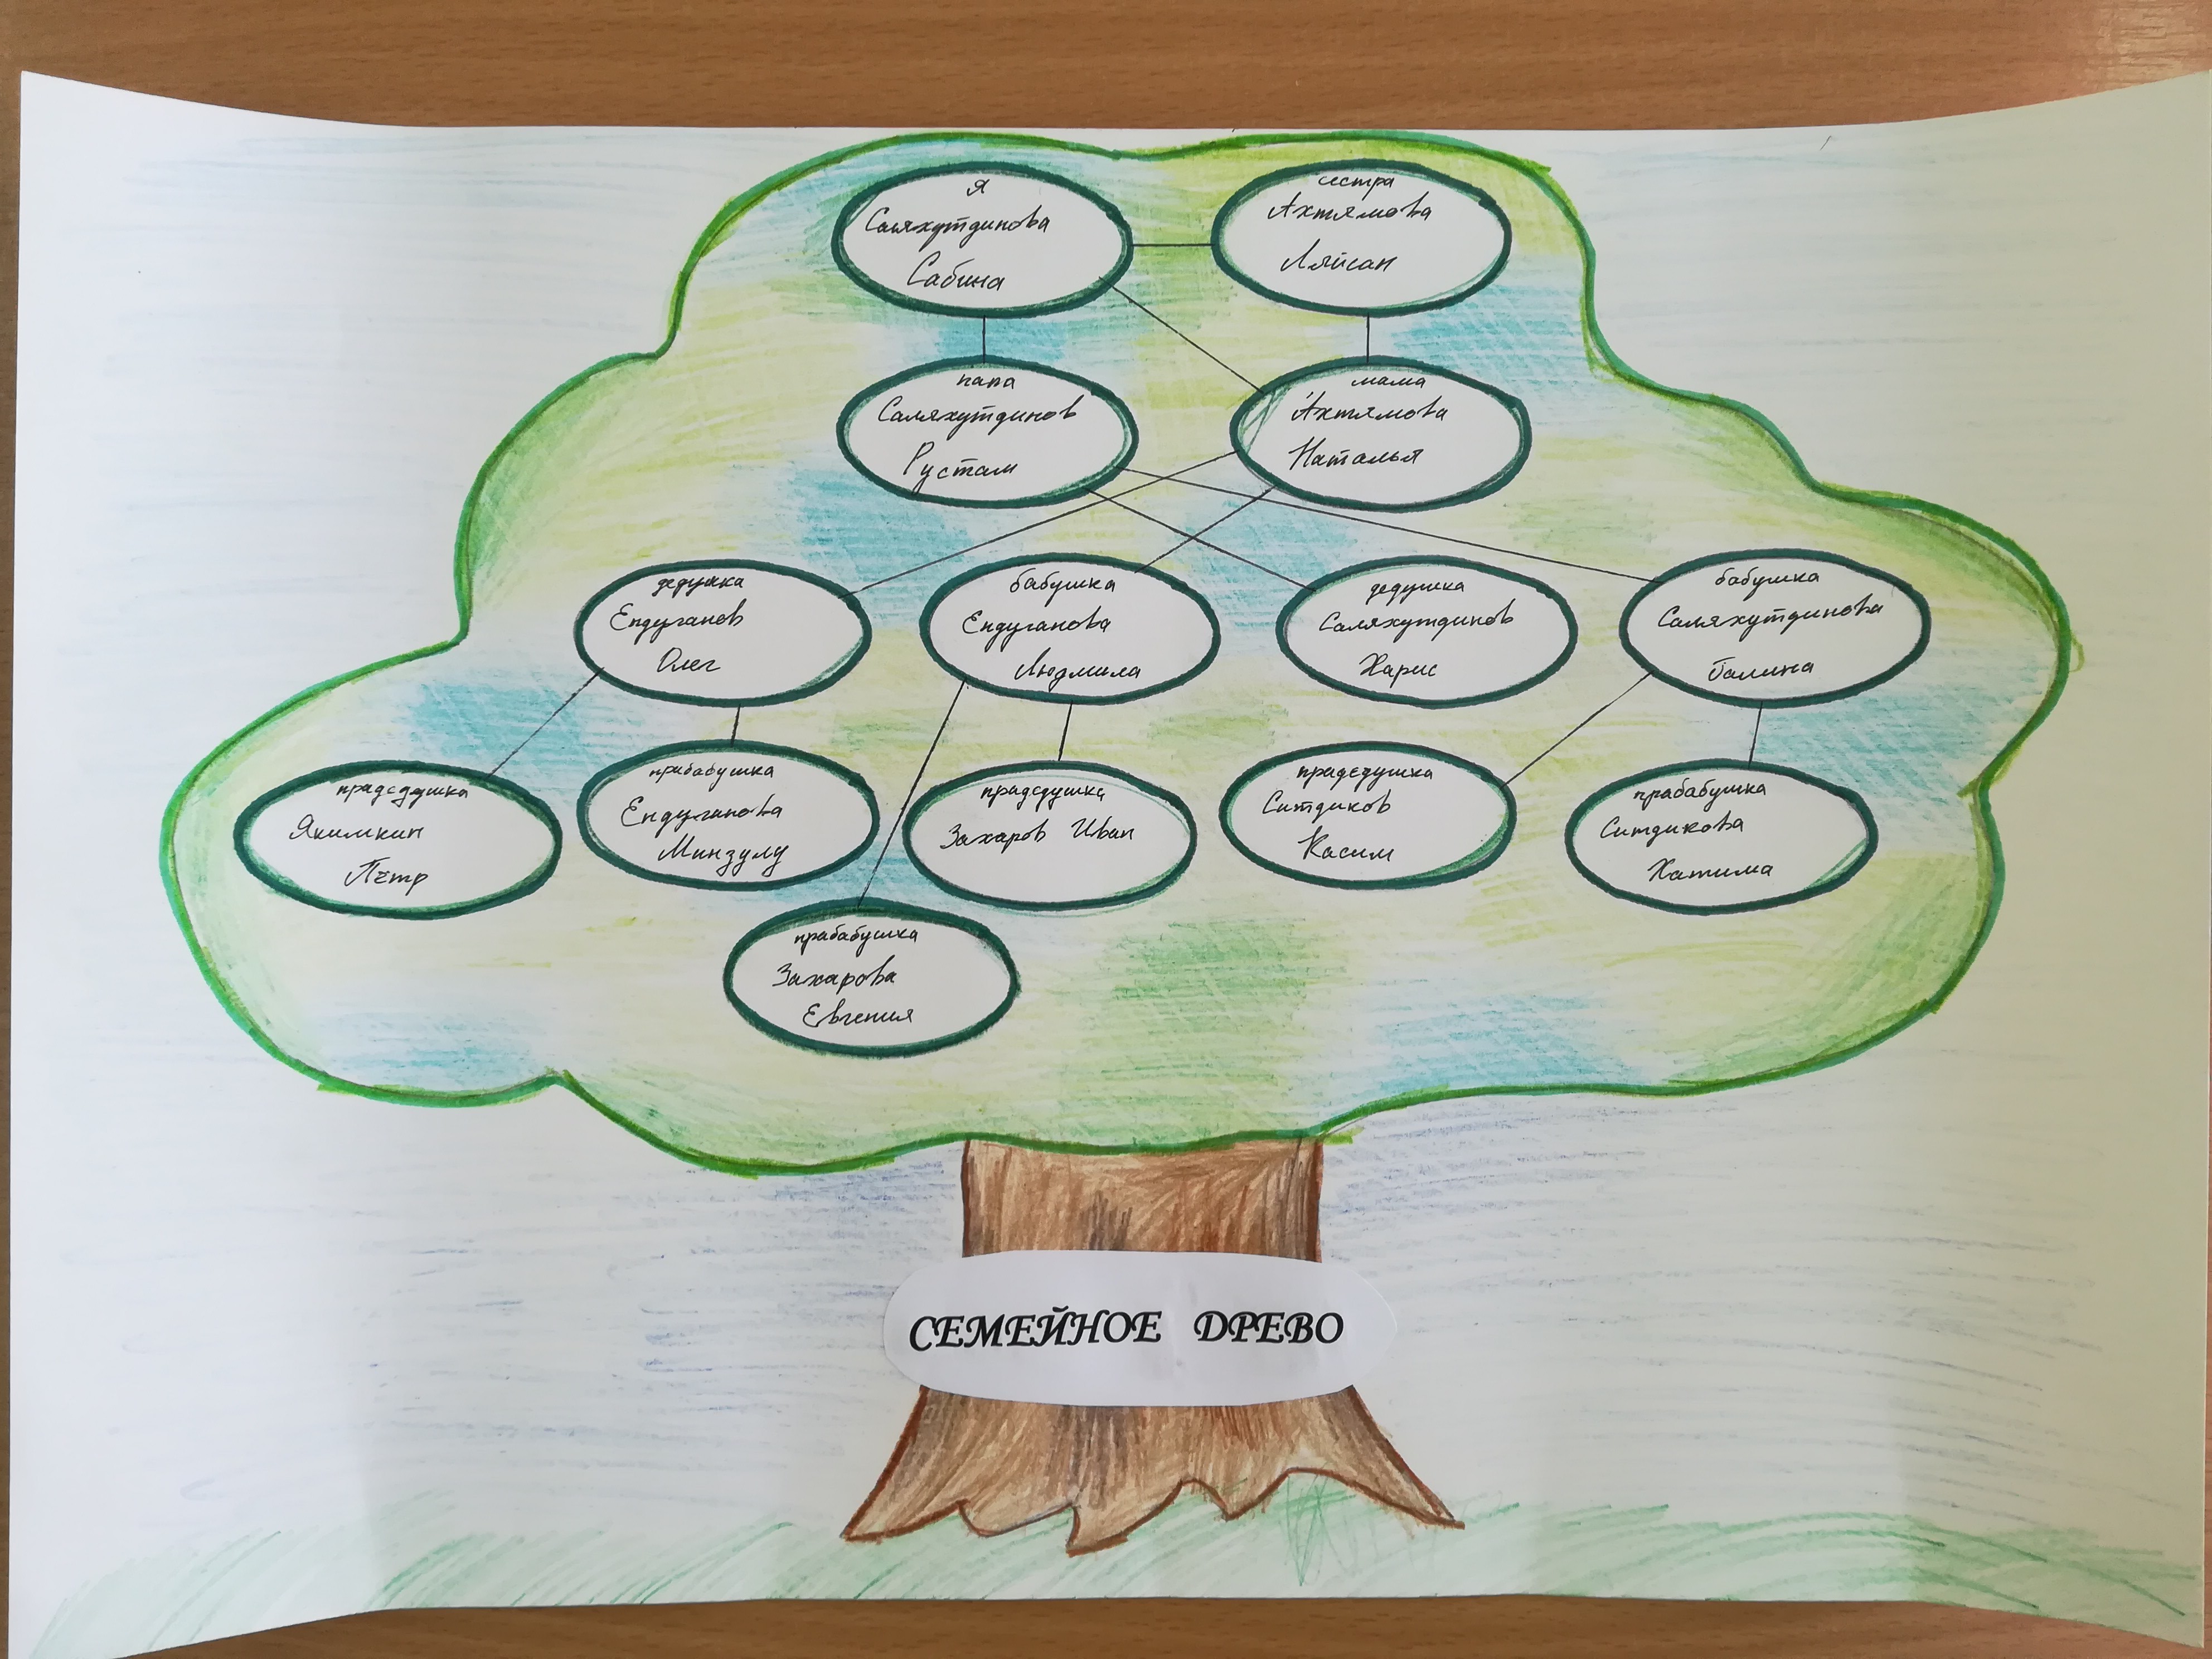 я
Саляхутдинова
Сабина
сестра
Ахтямова
Ляйсан
папа
Саляхутдинов
Рустам
мама
Ахтямова
Наталья
дедушка
Ендуганов
Олег
бабушка
Ендуганова
Людмила
дедушка
Саляхутдинов
Харис
бабушка
Саляхутдинова
Галина
прадедушка
Якимкин
Пётр
прабабушка
Ендуганова
Минзулу
прадедушка
Захаров Иван
прадедушка
Ситдиков
Касим
прабабушка
Ситдикова
Хатима
прабабушка
Захарова
Евгения
СЕМЕЙНОЕ ДРЕВО